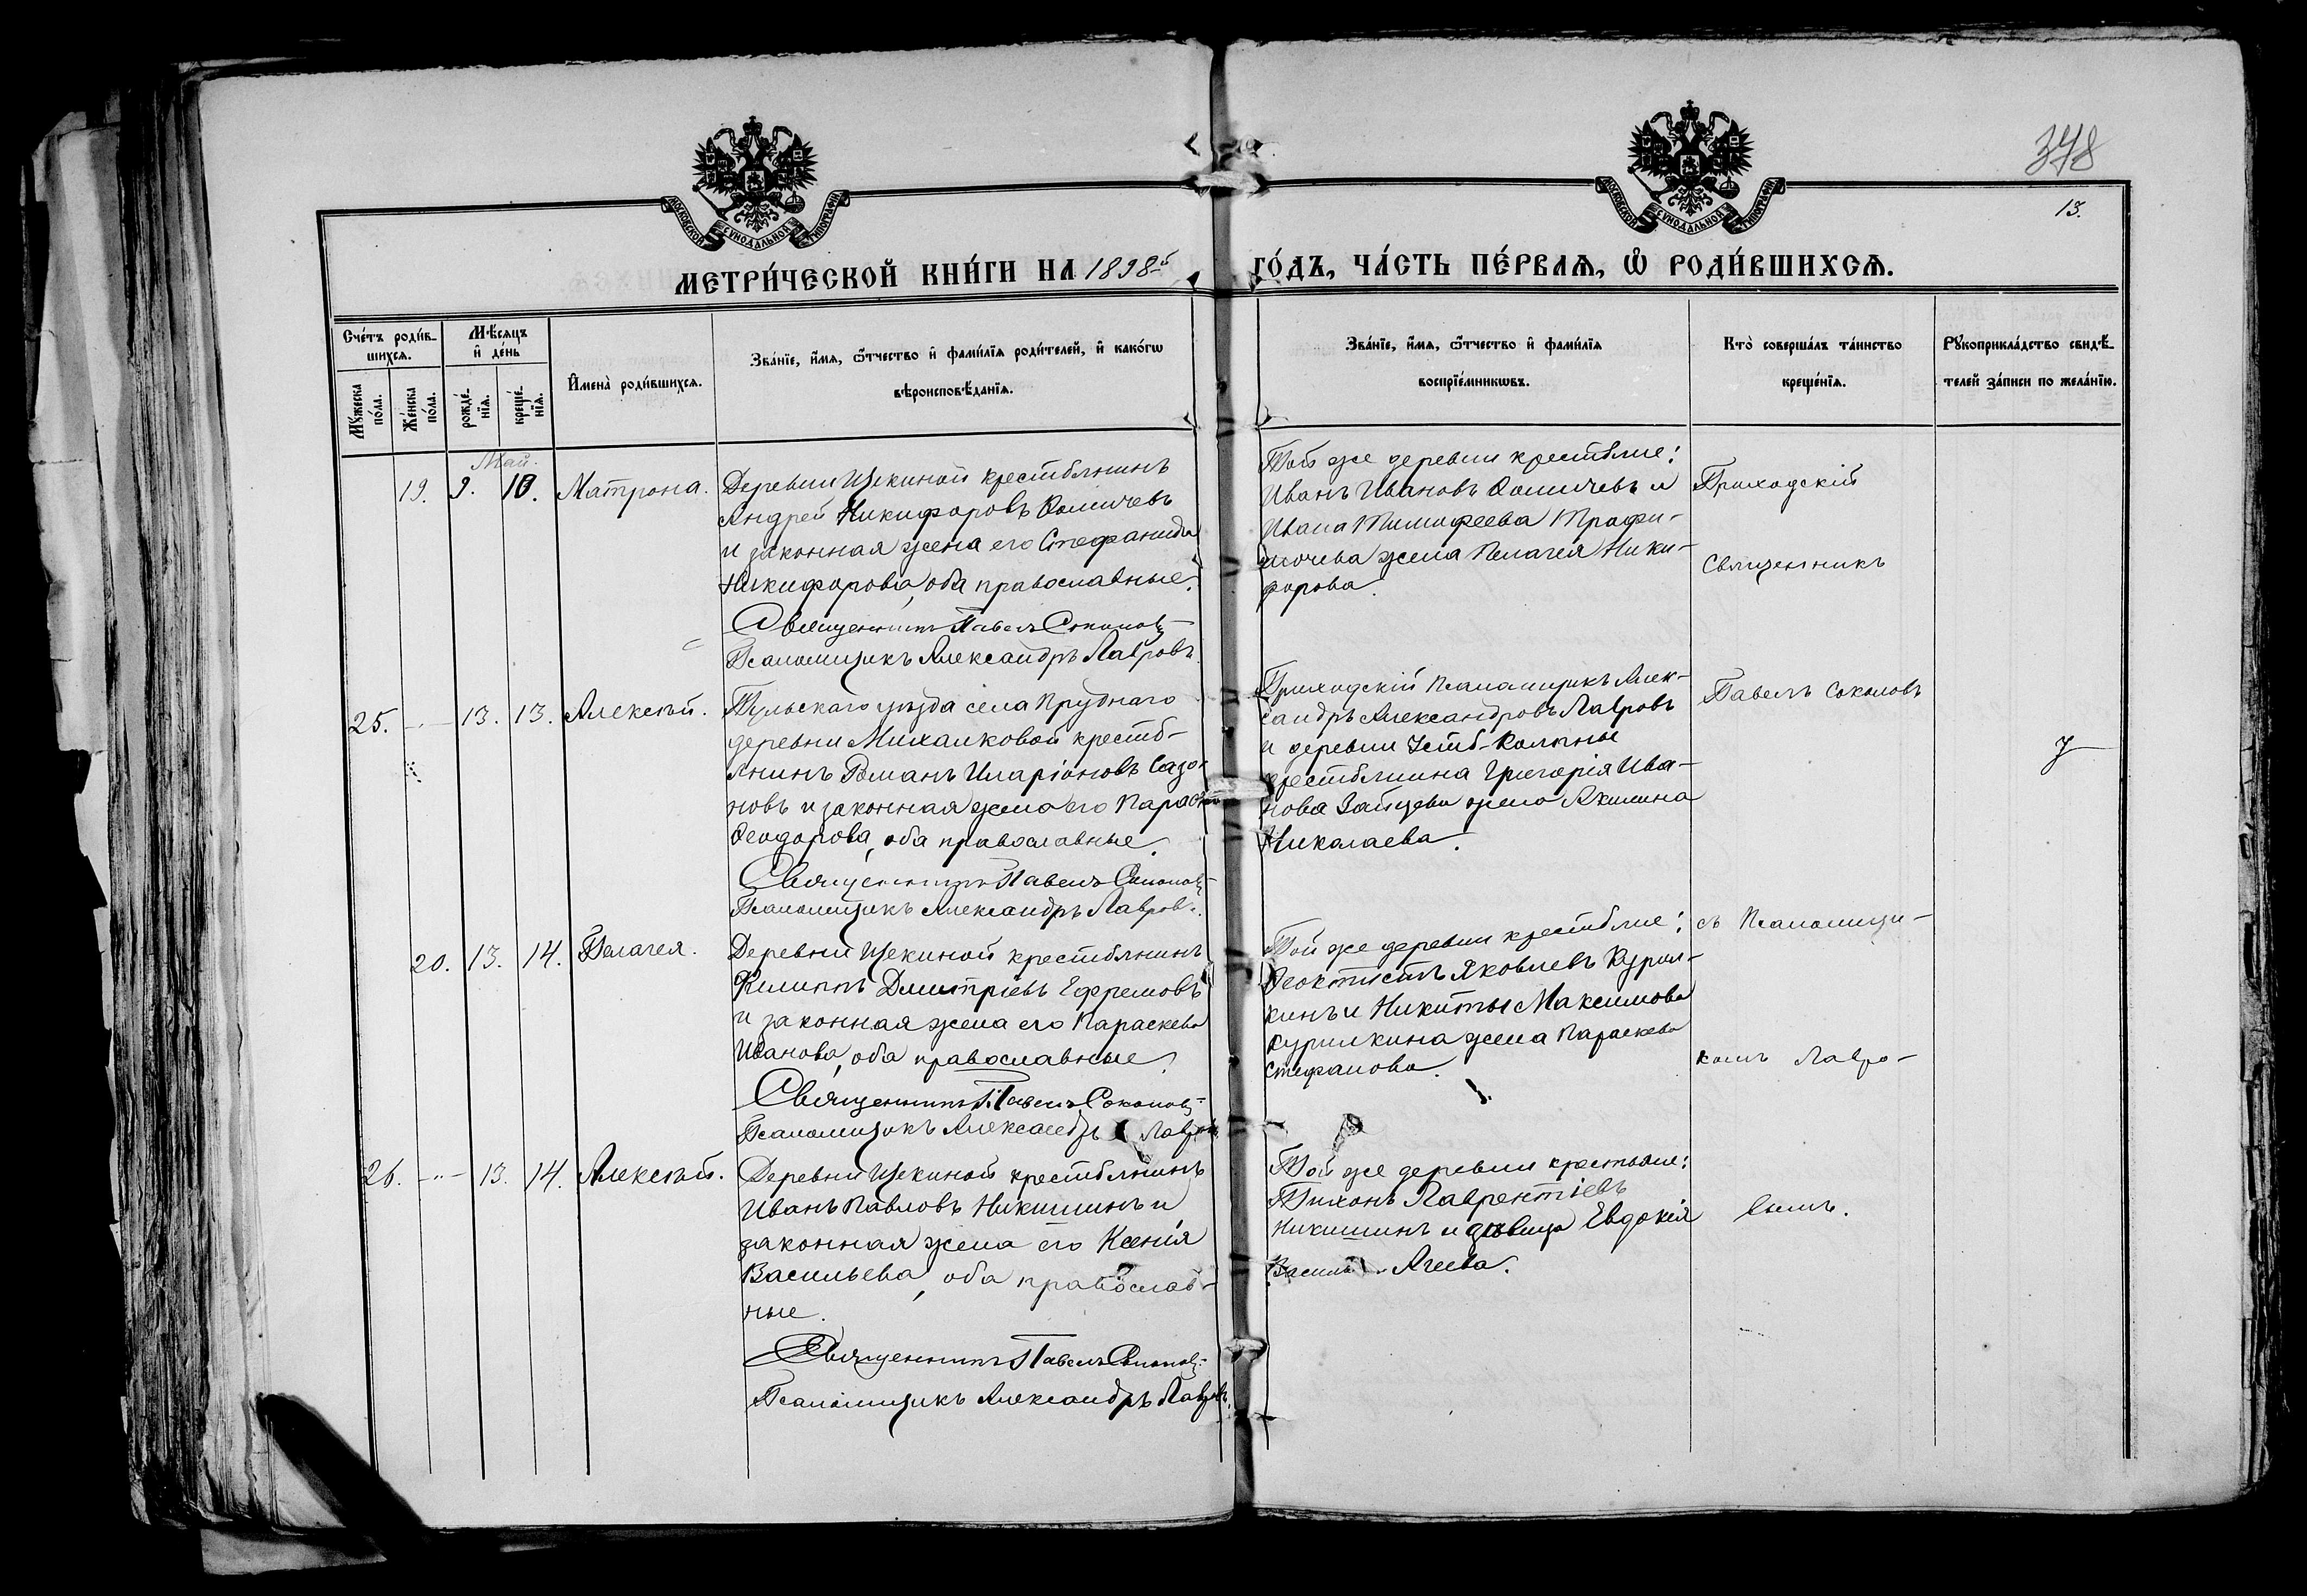 378
13.
МОСКОВСКОЙ СУНОДАЛЬНОЙ ТИПОГРАФІИ
МОСКОВСКОЙ СУНОДАЛЬНОЙ ТИПОГРАФІИ
МЕТРИ́ЧЕСКОЙ КНИ́ГИ НА 1898й ГО́ДЪ, ЧА́СТЬ ПЕ́РВАѦ, Ѡ РОДИ́ВШИХСѦ.
Сче́тъ роди́в-
шихсѧ.
Мꙋ́жеска
по́ла.
Же́нска
по́ла.
Мѣ́сѧцъ
и҆ де́нь
рожде́-
нїѧ.
креще́-
нїѧ.
И҆мена̀ роди́вшихсѧ.
Зва́нїе, и҆́мѧ, ѻ҆́тчество и҆ фами́лїѧ роди́телей, и҆ како́гѡ
вѣроисповѣ́данїѧ.
Зва́нїе, и҆́мѧ, ѻ҆́тчество и҆ фами́лїѧ
воспрїе́мникѡвъ.
Кто̀ соверша́лъ та́инство
креще́нїѧ.
Рꙋкоприкла́дство свидѣ́-
телей за́писи по жела́нїю.
Май.
19. 9. 10. Матрона.
Деревни Щекиной крестьянинъ
Андрей Никифоровъ Ѳомичевъ
и законная жена его Стефанида
Никифорова, оба православные.
Священникъ Павелъ Соколовъ
Псаломщикъ Александръ Лавровъ.
Той же деревни крестьяне:
Иванъ Ивановъ Ѳомичевъ и
Ивана Тимофеева Трофи-
мочева жена Пелагея Ники-
форова.
25. -"- 13. 13. Алексѣй.
Тульскаго уѣзда села Пруднаго
деревни Михалковой кресть-
янинъ Романъ Иларіоновъ Сазо-
новъ и законная жена его Параскева
Ѳеодорова, оба православные.
Священникъ Павелъ Соколовъ
Псаломщикъ Александръ Лавровъ.
Приходскій Псаломщикъ Алек-
сандръ Александровъ Лавровъ
и деревни Усть-Колпны
крестьянина Григорія Ива-
нова Зайцева жена Акилина
Николаева.
20. 13. 14. Пелагея.
Деревни Щекиной крестьянинъ
Филиппъ Дмитріевъ Ефремовъ
и законная жена его Параскева
Иванова, оба православные.
Священникъ Павелъ Соколовъ
Псаломщикъ Александръ Лавровъ
Той же деревни крестьяне:
Ѳеоктистъ Яковлевъ Курил-
кинъ и Никиты Максимова
Курилкина жена Параскева
Стефанова.
26. -"- 13. 14. Алексѣй.
Деревни Щекиной крестьянинъ
Иванъ Павловъ Никишинъ и
законная жена его Ксенія
Васильева, оба православ-
ные.
Священникъ Павелъ Соколовъ
Псаломщикъ Александръ Лавровъ.
Той же деревни крестьяне:
Тихонъ Лаврентіевъ
Никишинъ и дѣвица Евдокія
Агеева.
Приходскій
Священникъ
Павелъ Соколовъ
съ Псаломщи-
комъ Лавро-
вымъ.